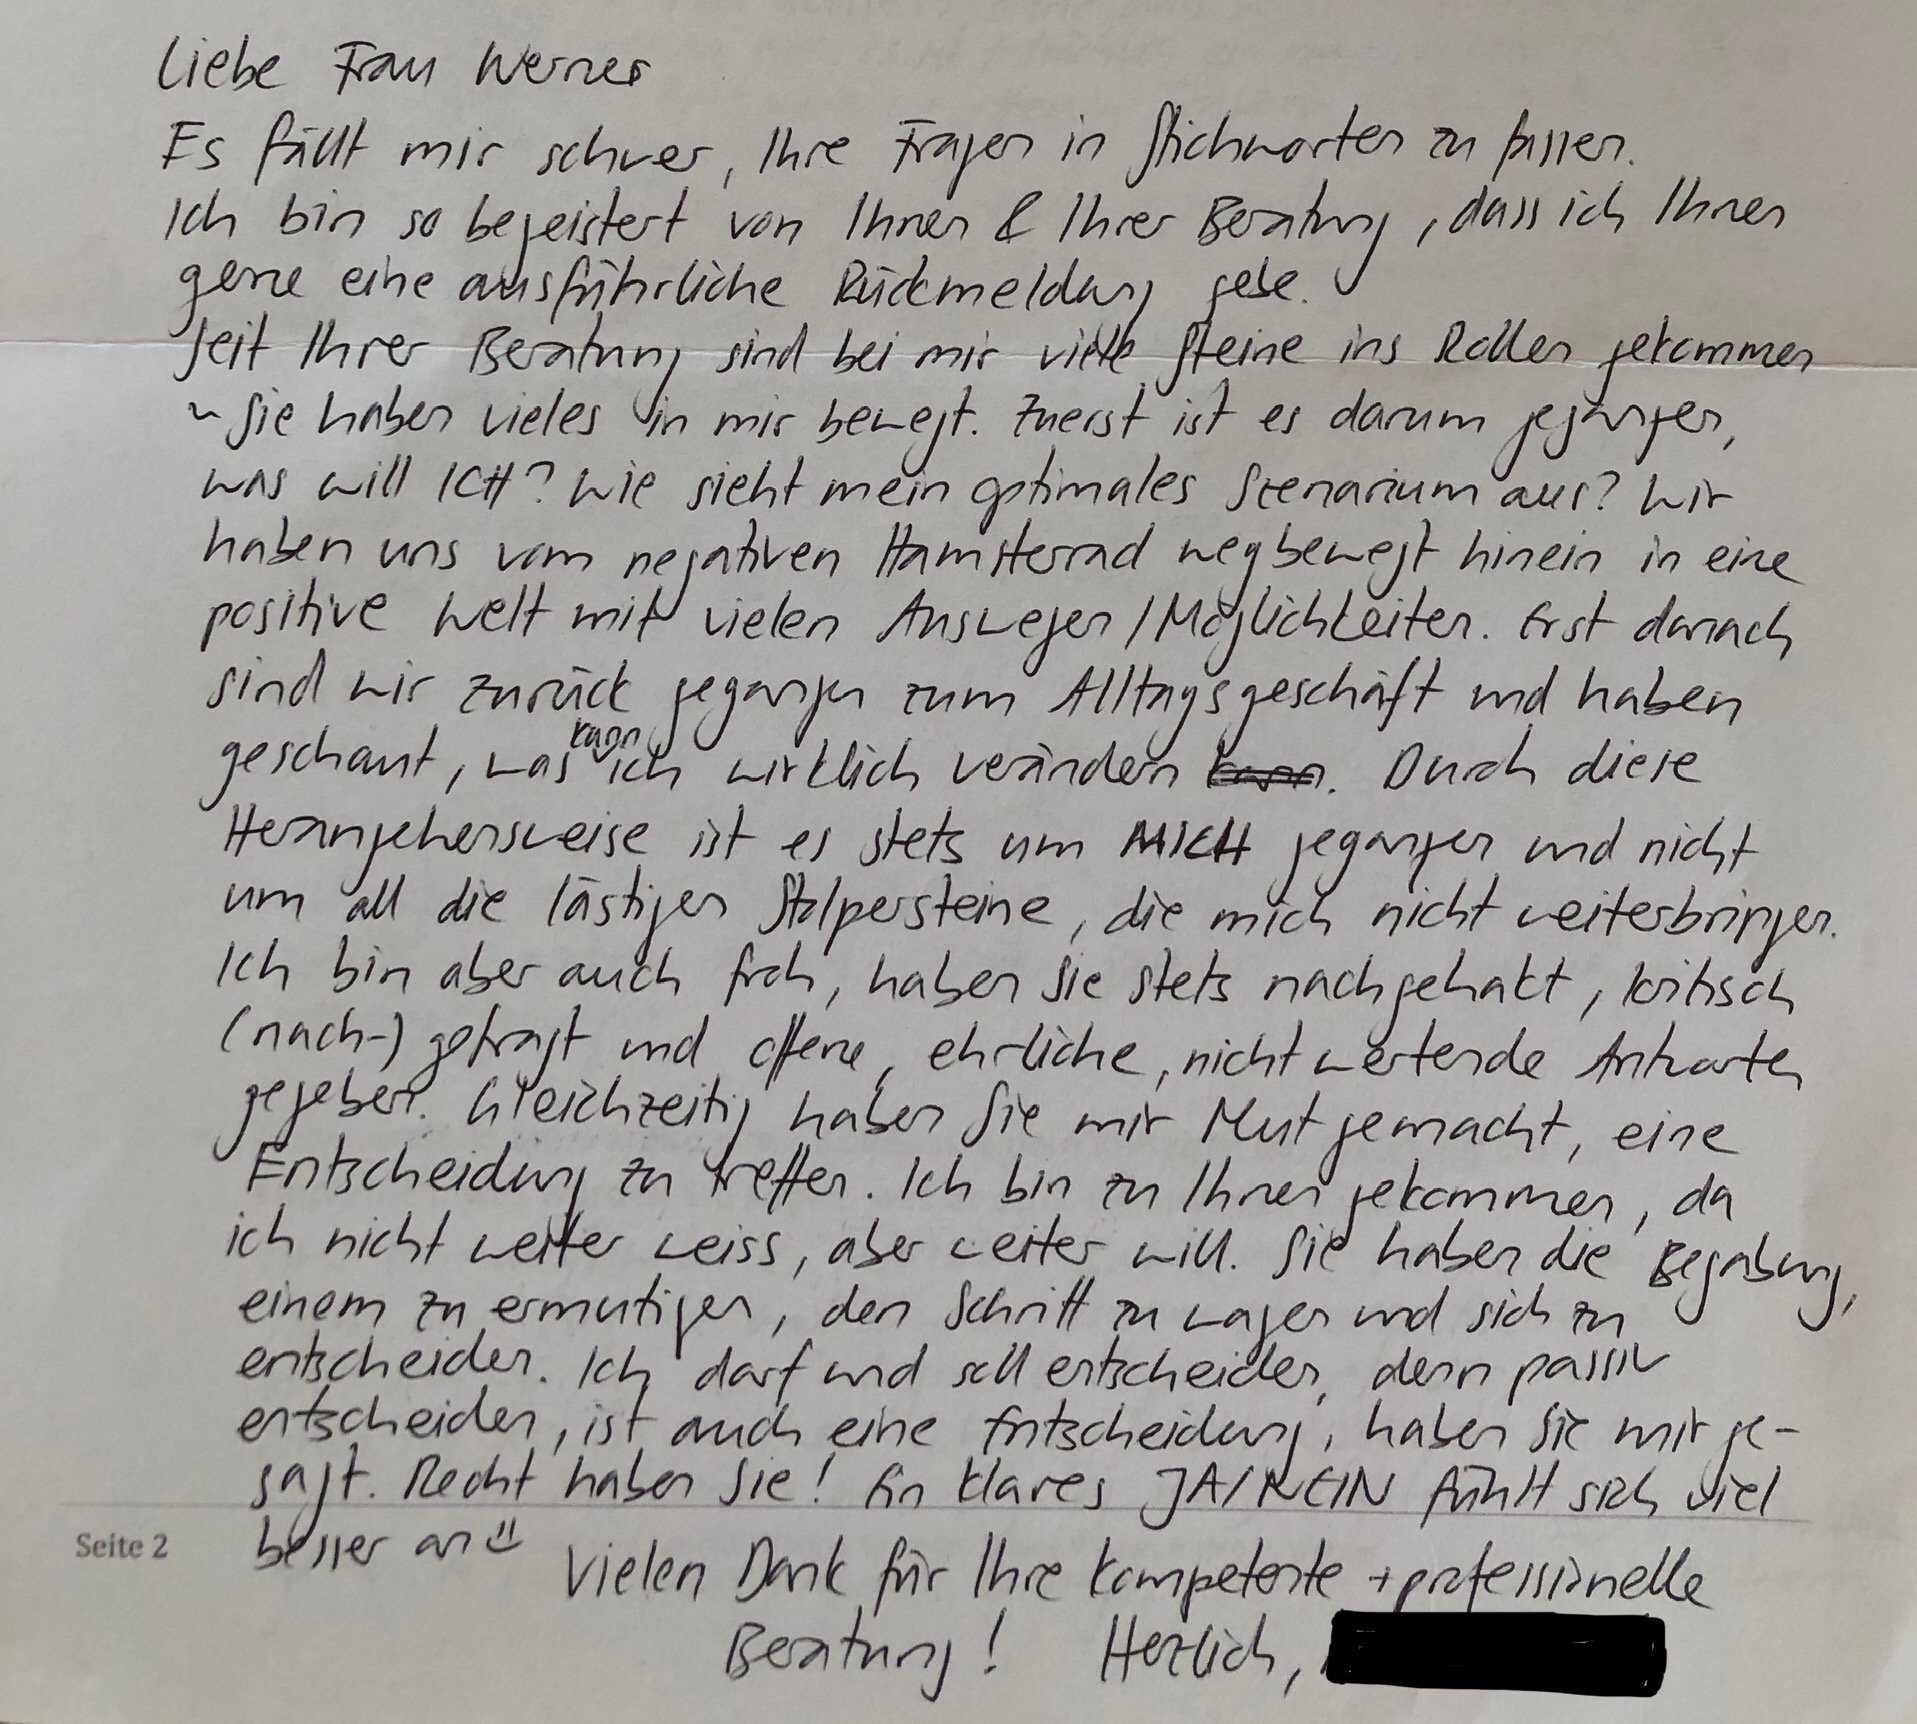 Liebe Frau Werner
Es fällt mir schwer, Ihre Fragen in Stichworten zu fassen.
Ich bin so begeistert von Ihnen & Ihrer Beratung, dass ich Ihnen
gerne eine ausführliche Rückmeldung gebe.
Seit Ihrer Beratung sind bei mir viele Steine ins Rollen gekommen
~ Sie haben vieles in mir bewegt. Zuerst ist es darum gegangen,
was will ICH? Wie sieht mein optimales Szenarium aus? Wir
haben uns vom negativen Hamsterrad wegbewegt hinein in eine
positive Welt mit vielen Auswegen/Möglichkeiten. Erst danach
sind wir zurück gegangen zum Alltagsgeschäft und haben
geschaut, was kann ich wirklich verändern kann. Durch diese
Herangehensweise ist es stets um MICH gegangen und nicht
um all die lästigen Stolpersteine, die mich nicht weiterbringen.
Ich bin aber auch froh, haben Sie stets nachgehakt, kritisch
(nach-) gefragt und offene, ehrliche, nicht wertende Antworten
gegeben. Gleichzeitig haben Sie mir Mut gemacht, eine
Entscheidung zu treffen. Ich bin zu Ihnen gekommen, da
ich nicht weiter weiss, aber weiter will. Sie haben die Begabung,
einem zu ermutigen, den Schritt zu wagen und sich zu
entscheiden. Ich darf und soll entscheiden, denn passiv
entscheiden, ist auch eine Entscheidung, haben Sie mir ge-
sagt. Recht haben Sie! Ein klares JA/NEIN fühlt sich viel
besser an
Seite 2
Vielen Dank für Ihre kompetente + professionelle
Beratung! Herzlich,